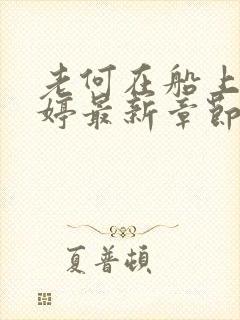 老何在船上
婷最新章节
夏普顿